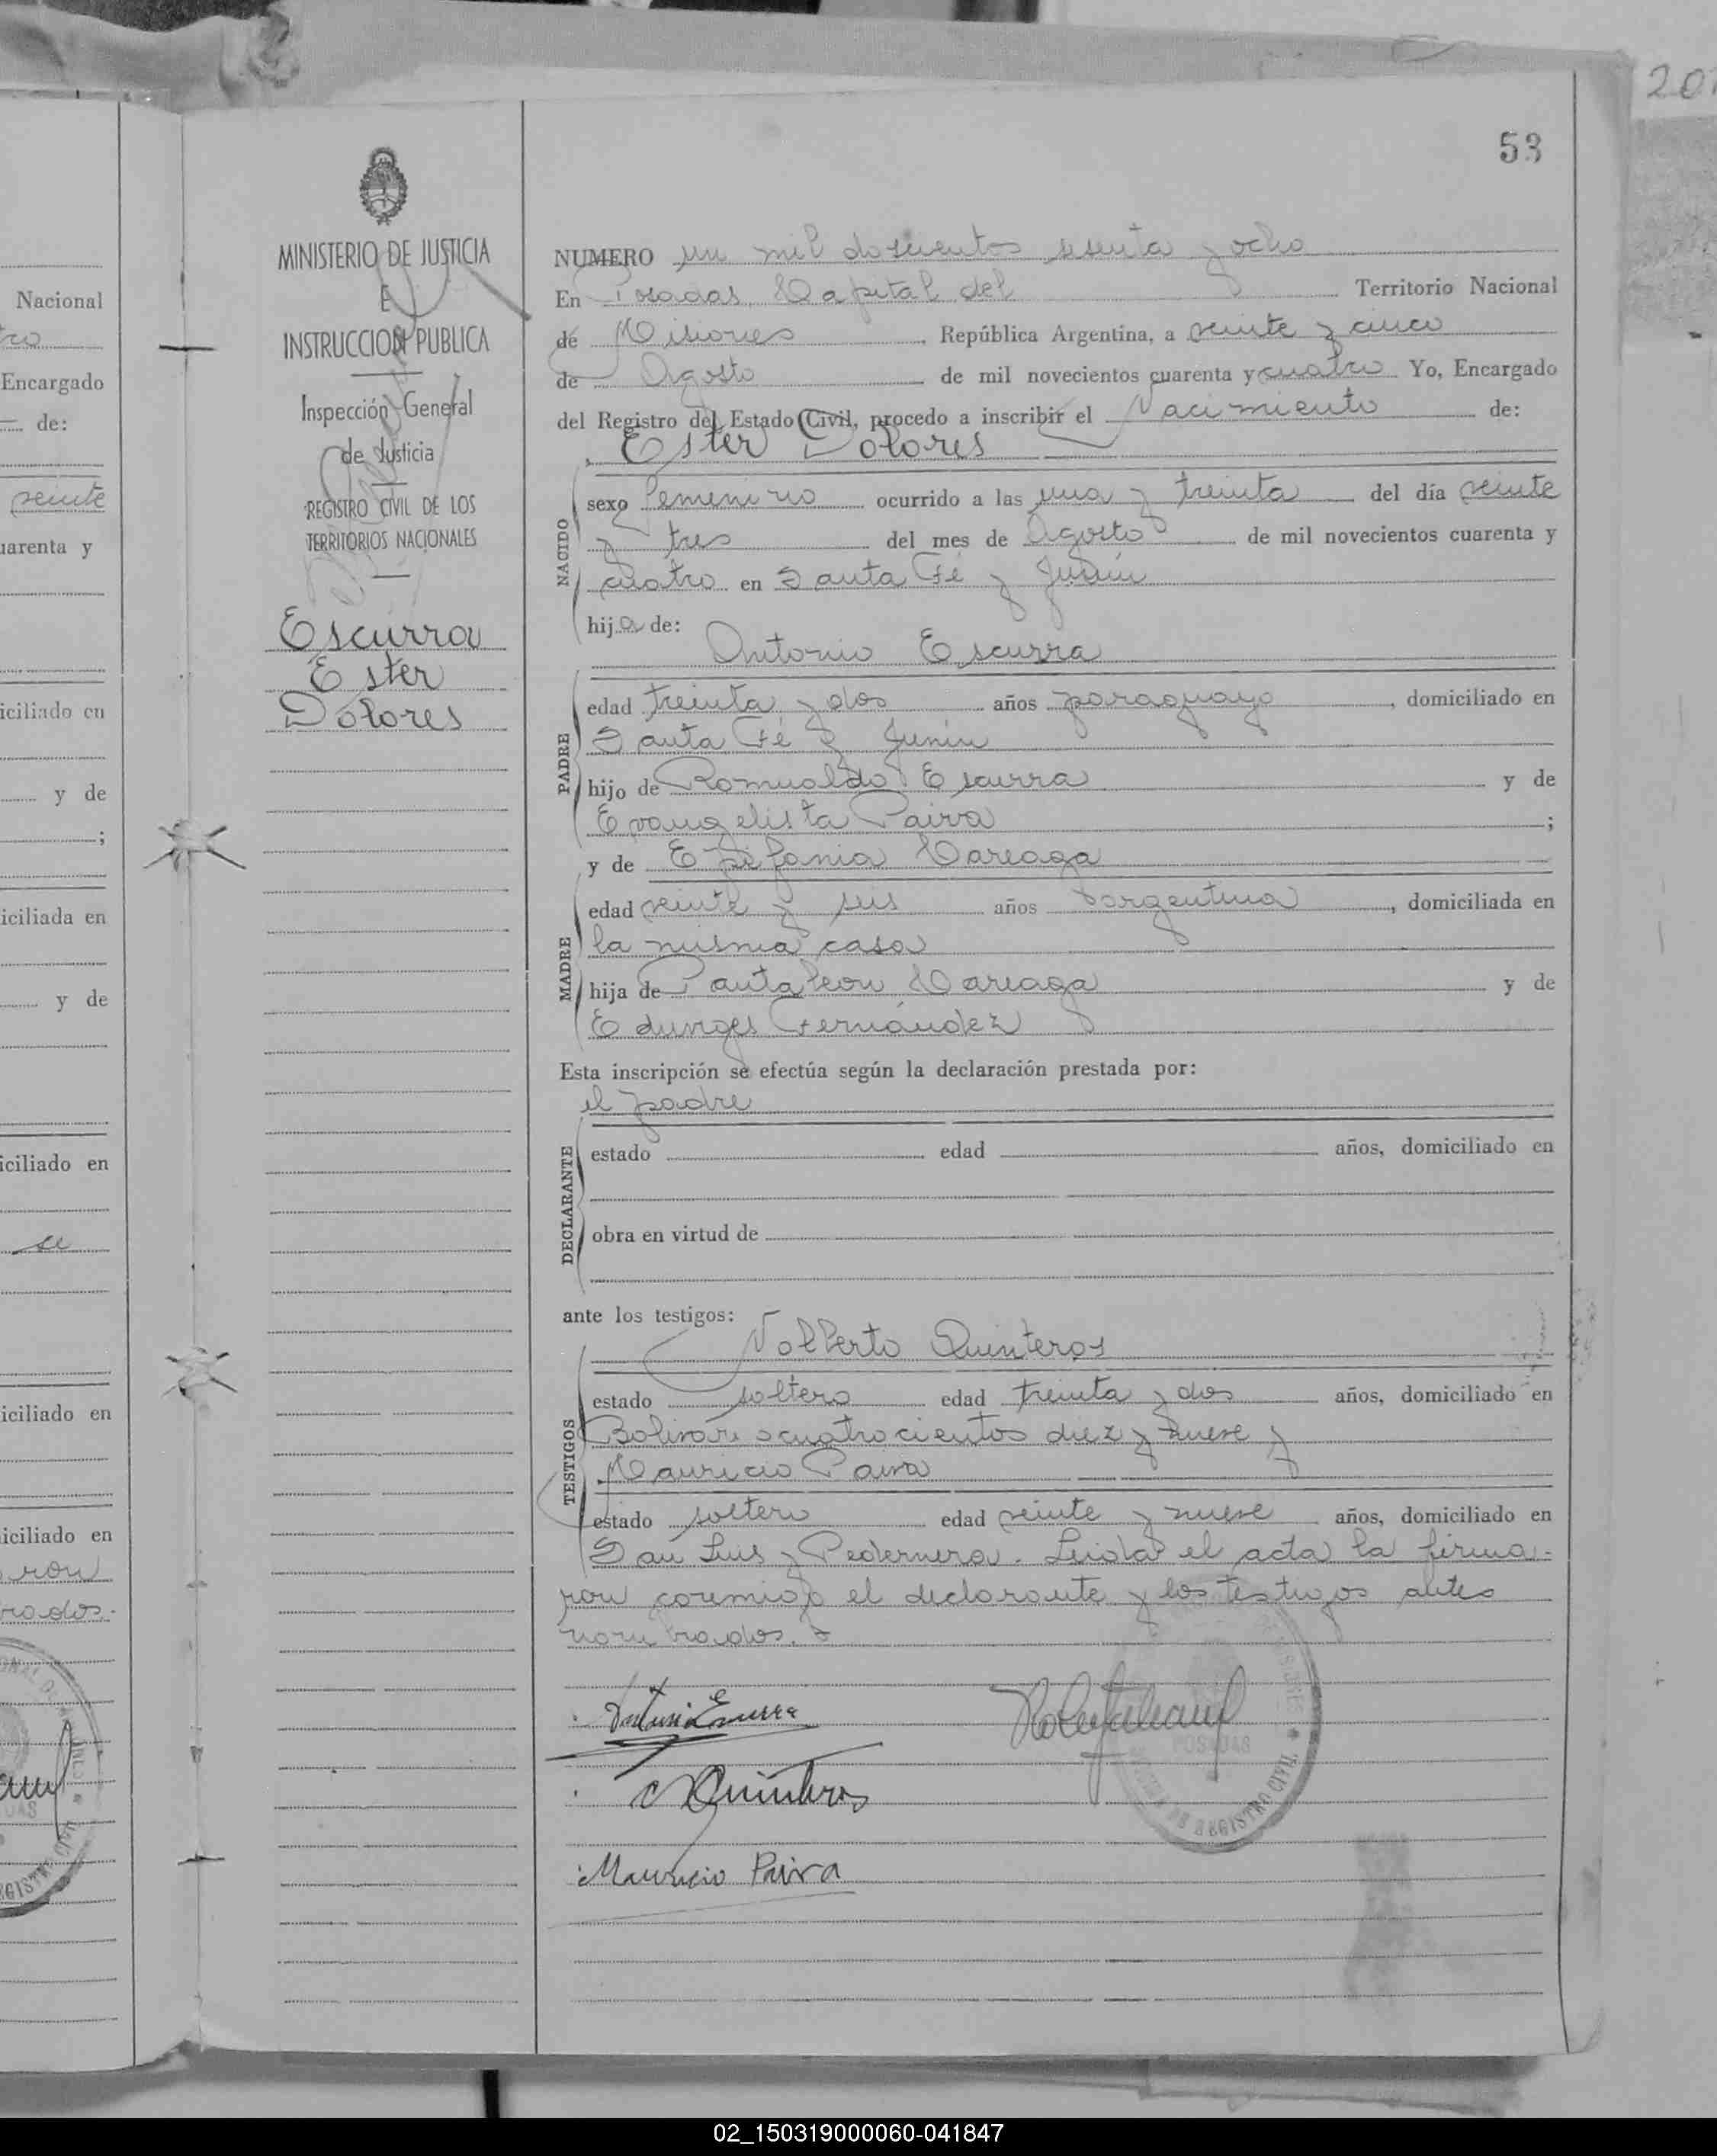 201
53
MINISTERIO DE JUSTICIA
E
INSTRUCCION PUBLICA
Inspección General
de Justicia
REGISTRO CIVIL DE LOS
TERRITORIOS NACIONALES
Escurra
Ester
Dolores
NUMERO un mil doscientos sesenta y ocho
En Posadas, Capital del Territorio Nacional
de Misiones, República Argentina, a veinte y cinco
de Agosto de mil novecientos cuarenta y cuatro Yo, Encargado
del Registro del Estado Civil, procedo a inscribir el Nacimiento de:
Ester Dolores
NACIDO
sexo femenino ocurrido a las una y treinta del día veinte
y tres del mes de Agosto de mil novecientos cuarenta y
cuatro en Santa Fé y Junin
hija de:
Antonio Escurra
PADRE
edad treinta y dos años paraguayo, domiciliado en
Santa Fé y Junin
hijo de Romualdo Escurra y de
Evangelista Paiva;
y de Epifania Careaga
MADRE
edad veinte y seis años argentina, domiciliada en
la misma casa
hija de Pantaleon Careaga y de
Edunges Fernández
Esta inscripción se efectúa según la declaración prestada por:
el padre
DECLARANTE
estado edad años, domiciliado en
obra en virtud de
ante los testigos:
Nolberto Quinteros
TESTIGOS
estado soltero edad treinta y dos años, domiciliado en
Bolivar cuatrocientos diez y nueve y
Mauricio Paiva
estado soltero edad veinte y nueve años, domiciliado en
San Luis y Pedernera. Leida el acta la firma-
ron conmigo el declarante y los testigos antes
nombrados.
Antonio Escurra
N Quinteros
Mauricio Paiva
POSADAS
REGISTRO CIVIL
Nacional
Encargado
de:
veinte
uarenta y
iciliado en
y de
;
iciliada en
y de
iciliado en
se
iciliado en
iciliado en
ron
brados.-
02_150319000060-041847